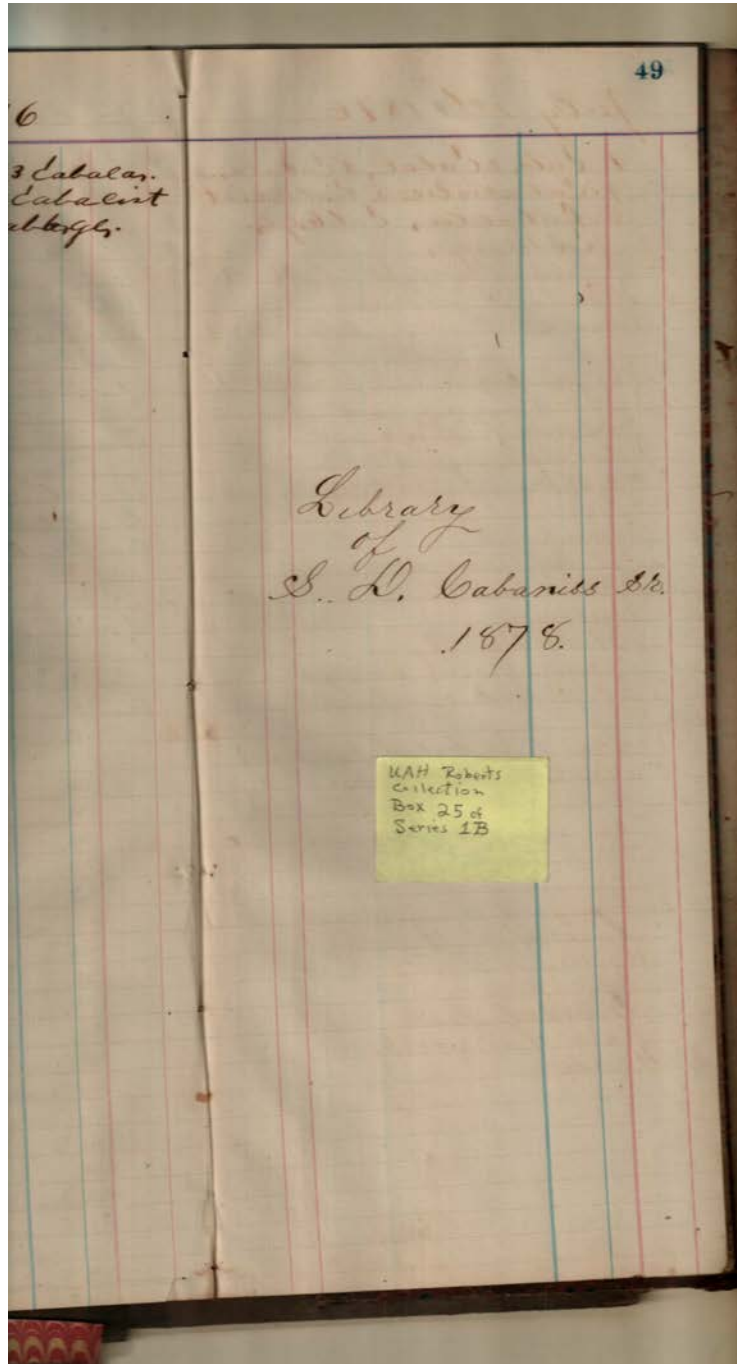 6
3 Cabalas.
Cabalist
49
Library
of
S. D. Cabaniss Sr.
1878.
UAH Roberts
Collection
Box 25 of
Series 1B